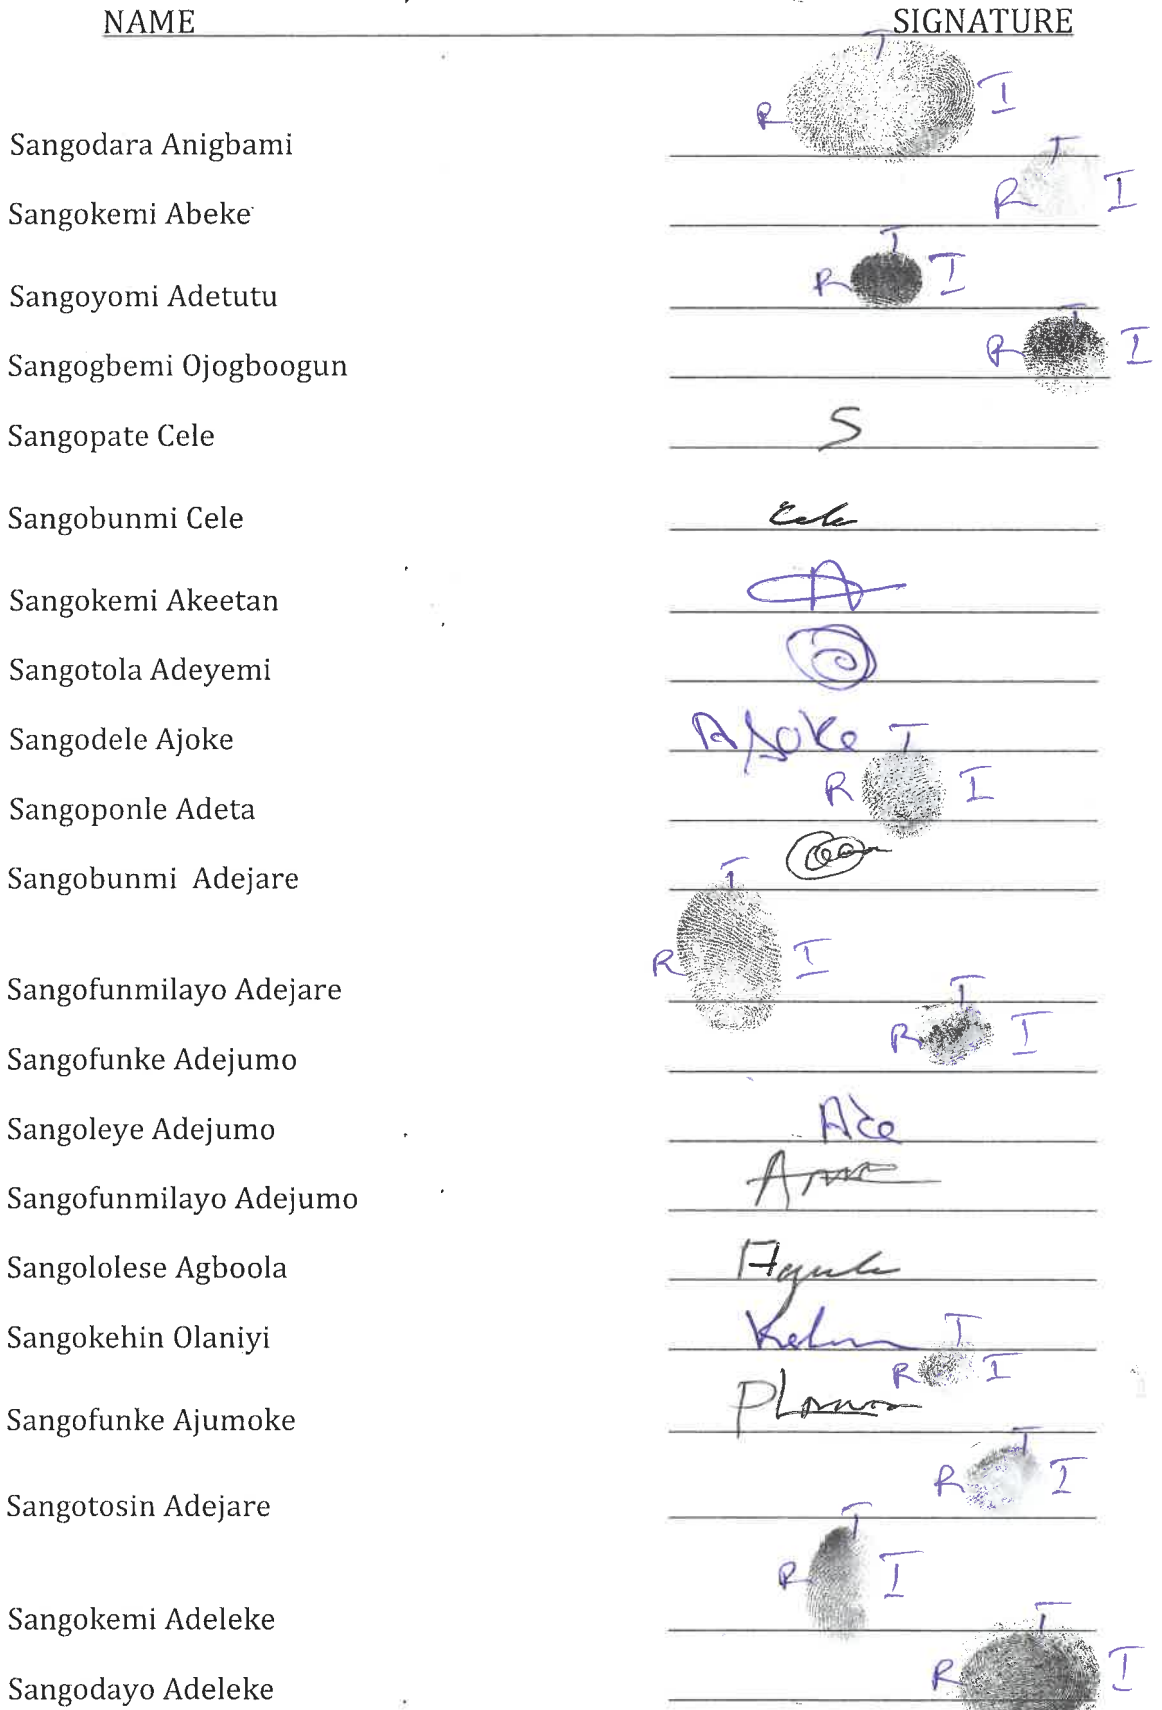 NAME SIGNATURE
T
R I
Sangodara Anigbami
T
R I
Sangokemi Abeke
T
R I
Sangoyomi Adetutu
T
R I
Sangogbemi Ojogboogun
Sangopate Cele S
Sangobunmi Cele Cele
Sangokemi Akeetan A
Sangotola Adeyemi
Sangodele Ajoke Ajoke
T
R I
Sangoponle Adeta
Sangobunmi Adejare
T
R I
Sangofunmilayo Adejare
T
R I
Sangofunke Adejumo
Sangoleye Adejumo Ade
Sangofunmilayo Adejumo
Sangololese Agboola
Sangokehin Olaniyi
T
R I
Sangofunke Ajumoke
T
R I
Sangotosin Adejare
T
R I
Sangokemi Adeleke
T
R I
Sangodayo Adeleke